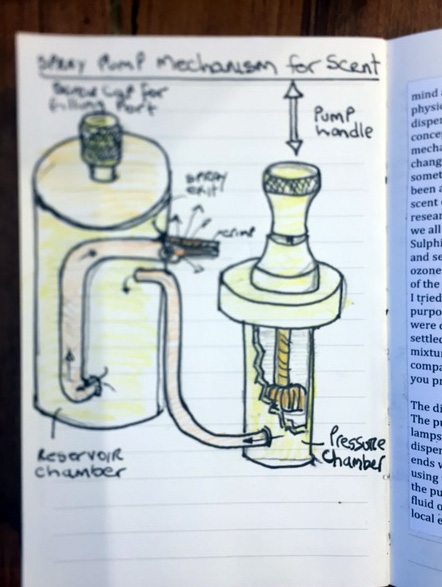 SPRAY PUMP MECHANISM for SCENT
Screw Cap for
filling Port
Pump
handle
SPRAY
EXIT
Reservoir
chamber
Pressure
Chamber
mind a
physic
disper
conce
mecha
chang
somet
been a
scent
resear
we all
Sulphi
and se
ozone
of the
I tried
purpo
were
settled
mixtu
compa
you p
The di
The pu
lamps
disper
ends v
using
the pu
fluid o
local e